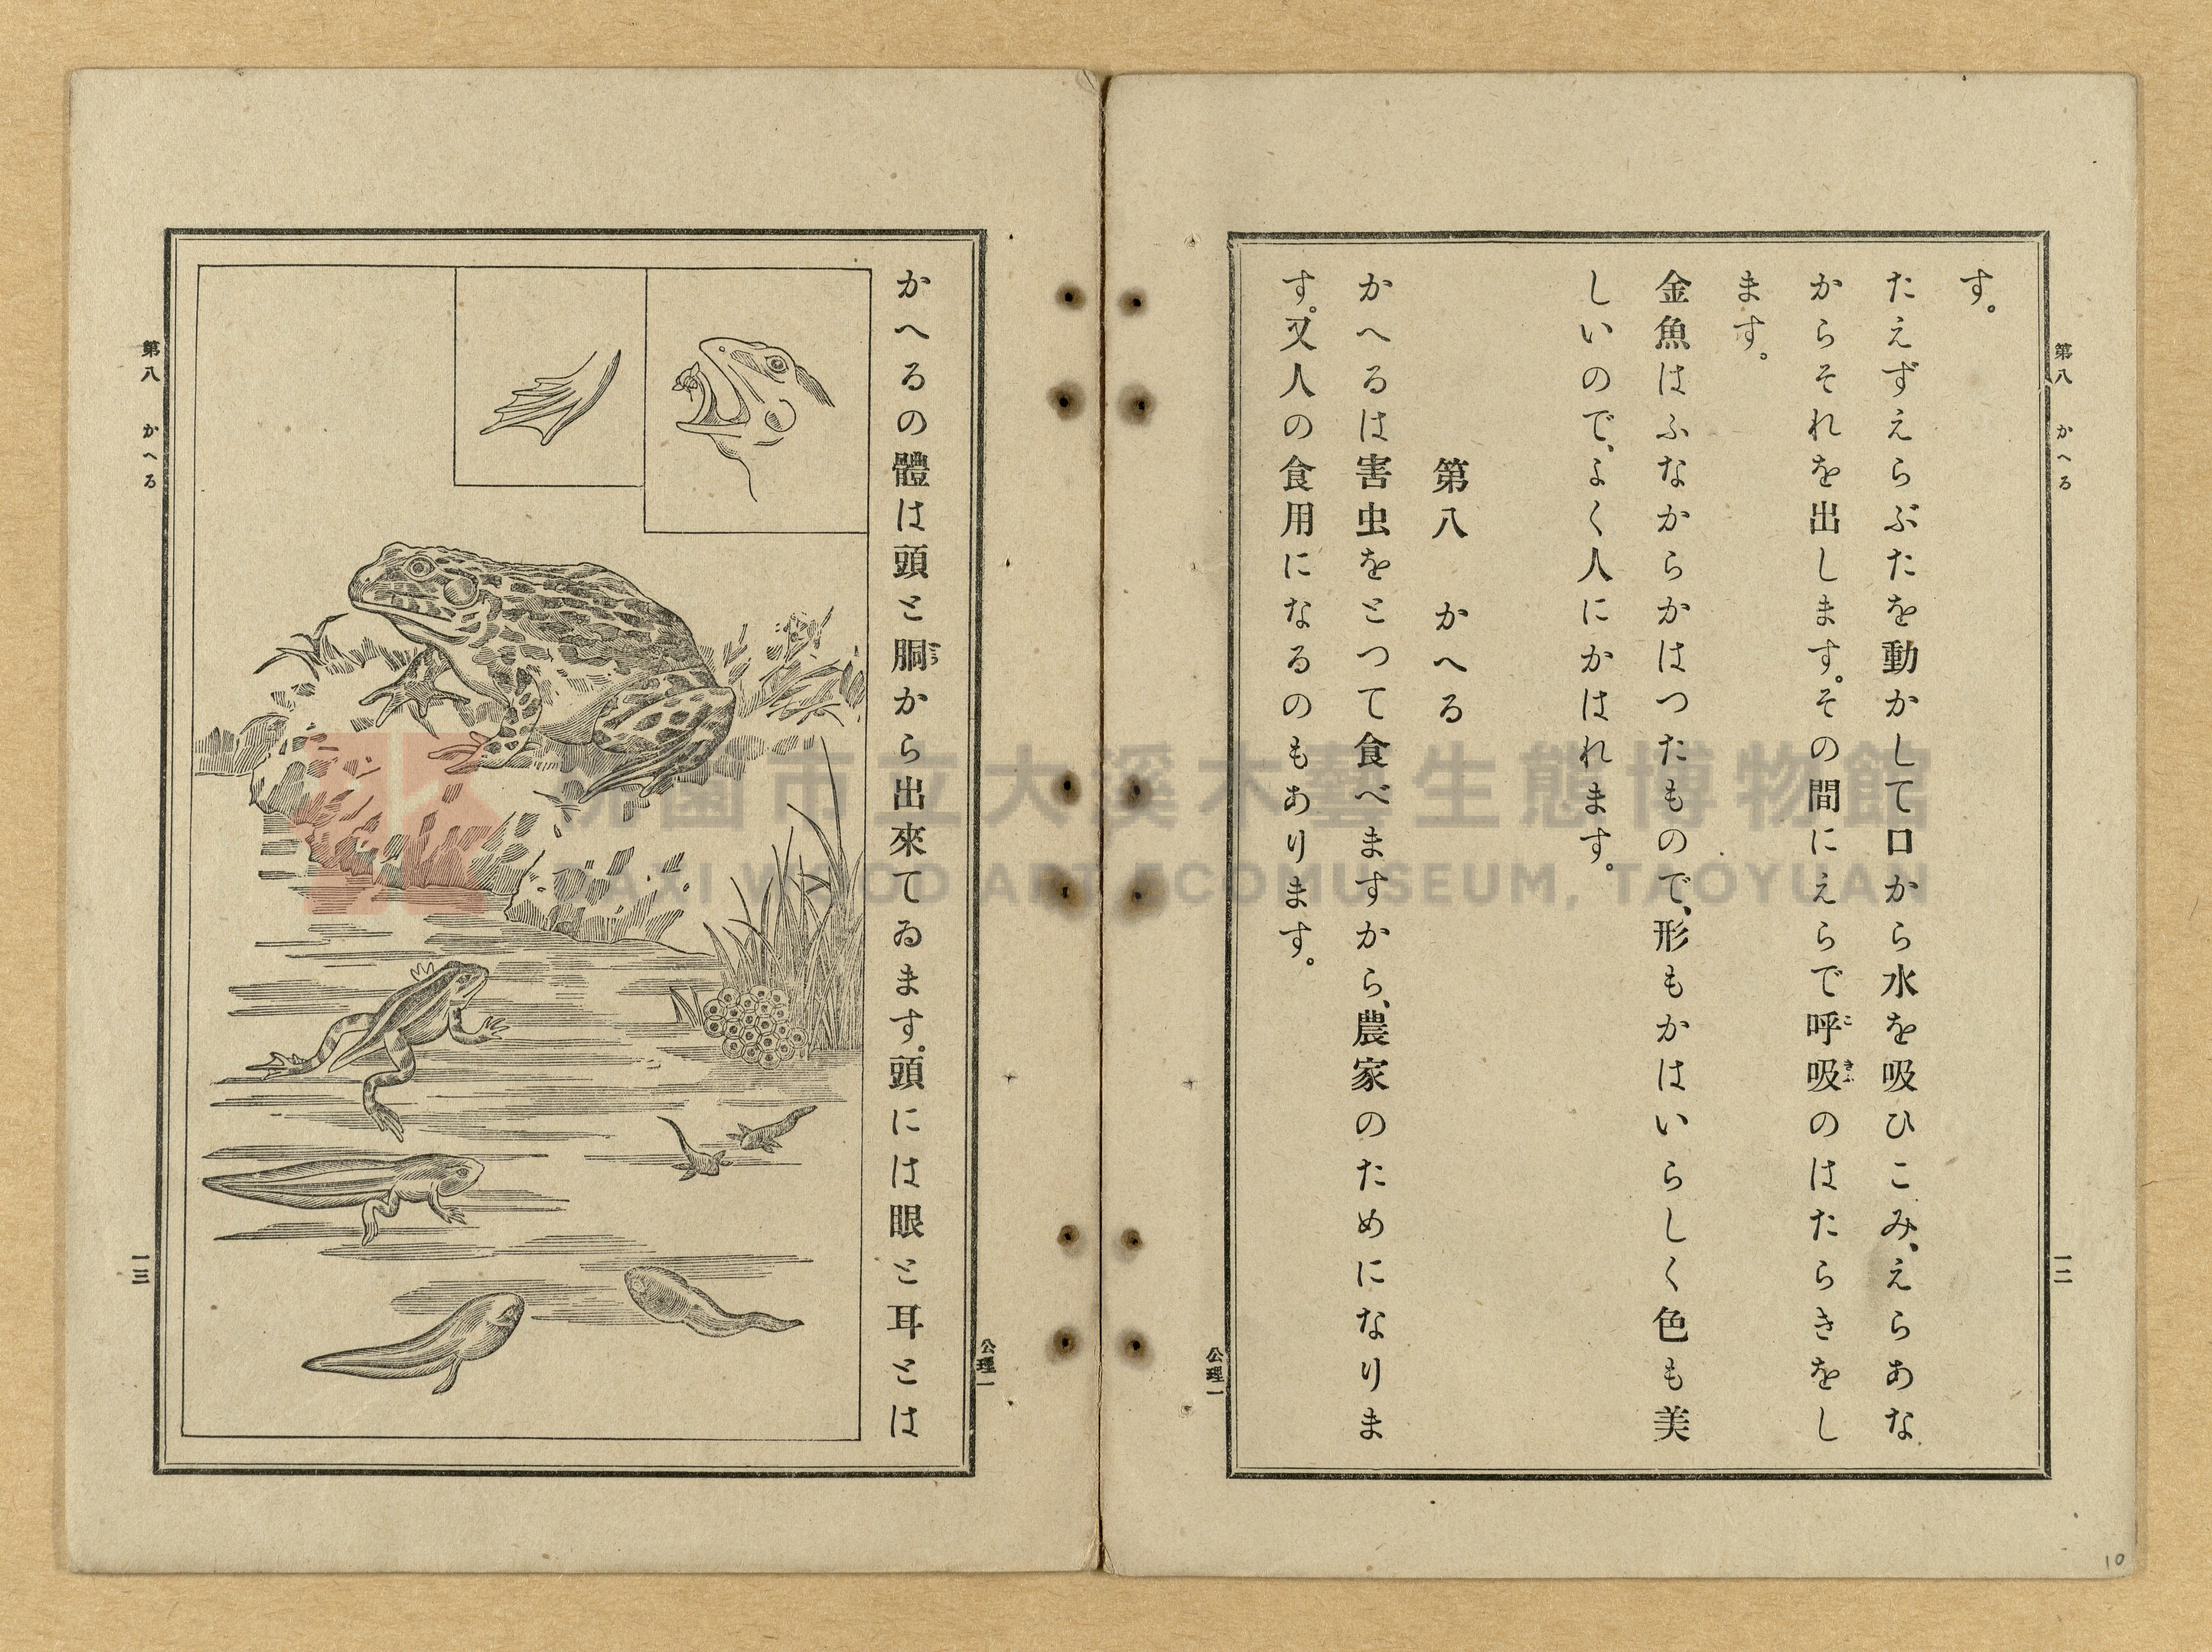 第八 かへる
一二
す。
たえずえらぶたを動かして口から水を吸ひこみ、えらあな
からそれを出します。その間にえらで呼吸のはたらきをし
こきふ
ます。
金魚はふなからかはつたもので、形もかはいらしく色も美
しいので、よく人にかはれます。
第八 かへる
かへるは害虫をとつて食べますから、農家のためになりま
す。又人の食用になるのもあります。
公理一
公理一
かへるの體は頭と胴から出來てゐます。頭には眼と耳とは
どう
第八 かへる
一三
桃園市立大溪木藝生態博物館
DAXI WOOD ART ECOMUSEUM, TAOYUAN
10